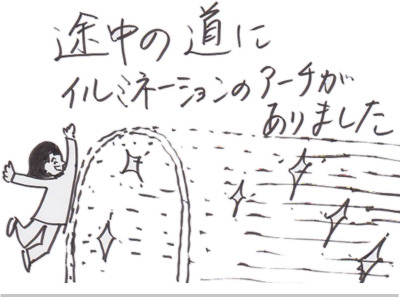 途中の道に
イルミネーションのアーチが
ありました